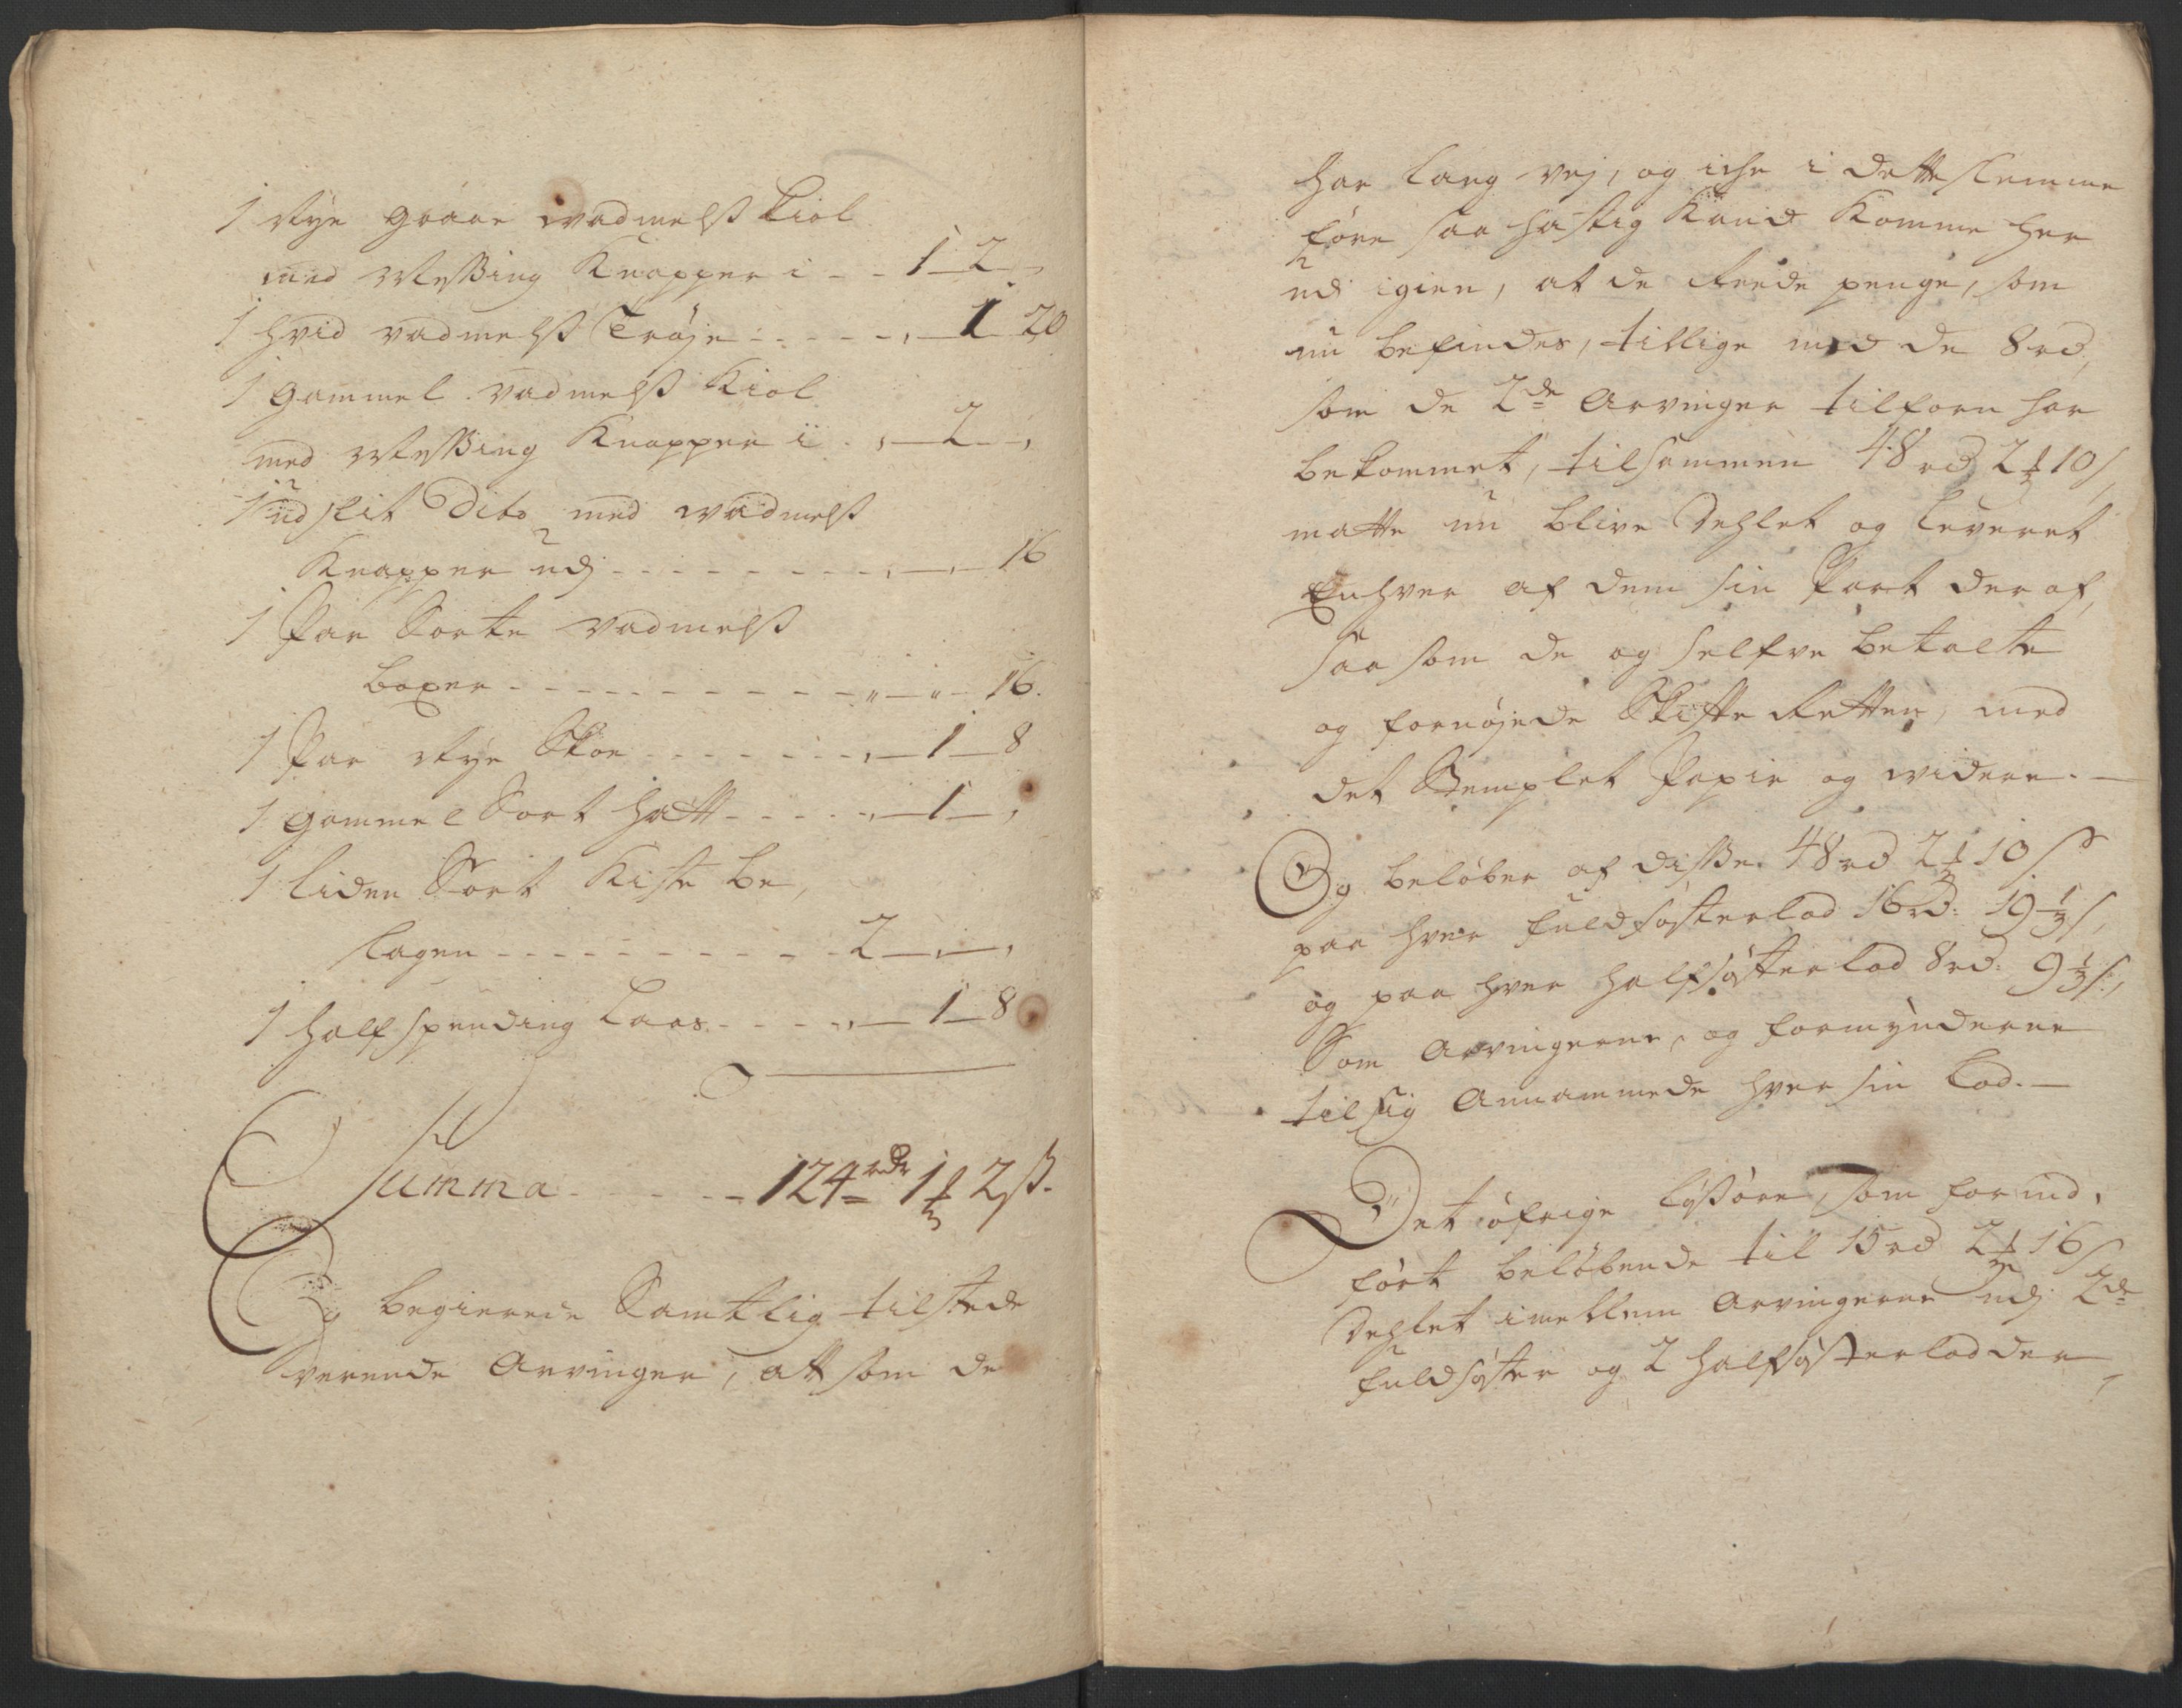 1 Nye graae wadmelß Kiol
med Meßing Knapper i - - 1 - 2 -
1 hvid vadmelß Trøje - - - - - 1 20
1 gammel vadmelß Kiol
med Meßing Knapper i - 2 -
1 udslit Dito med wadmelß
Knapper udj - - - - - - - 16
1 Par Sorte vadmelß
boxer - - - - - - - - - - 16.
1 Par Nye Skoe - - - - - 1 - 8
1 gammel Sort hatt - - - - 1 -
1 liden Sort Kiste be,
slagen - - - - - - - - 2 - -
1 half spending Laas - - - - 1 - 8
Summa - - - - - 124 rdr 1 ʒ 2 ß.
Og begierede Samtlig tilstede
verende Arvinger, att som de
har lang vej, og iche i dette slemme
føre saa hastig Kand Komme her
ud igien, at de Reede penge, som
nu befindes, tillige med de 8 rd,
som de 2de Arvinger tilforn har
bekommet, tilsammen 48 rd 2 ʒ 10 s,
matte nu blive Dehlet og leveret
Enhver af dem sin Part der af,
saa som de og selfve betalte
og fornøjede Skifte Retten, med
det Stemplet Papir og widere. -
Og beløber af diße 48 rd 2 ʒ 10 s
paa hver fuldsøsterlod 16 rd: 19 1/3 s,
og paa hver halfsøsterlod 8 rd: 9 2/3 s,
Som Arvingerne, og formynderne
til sig Annammede hver sin Lod. -
Det øfrige løßøre, som forind,
ført beløbende til 15 rd 2 ʒ 16 s
Dehlet imellem Arvingerne udj 2de
fuldsøster og 2 halfsøsterlodder,